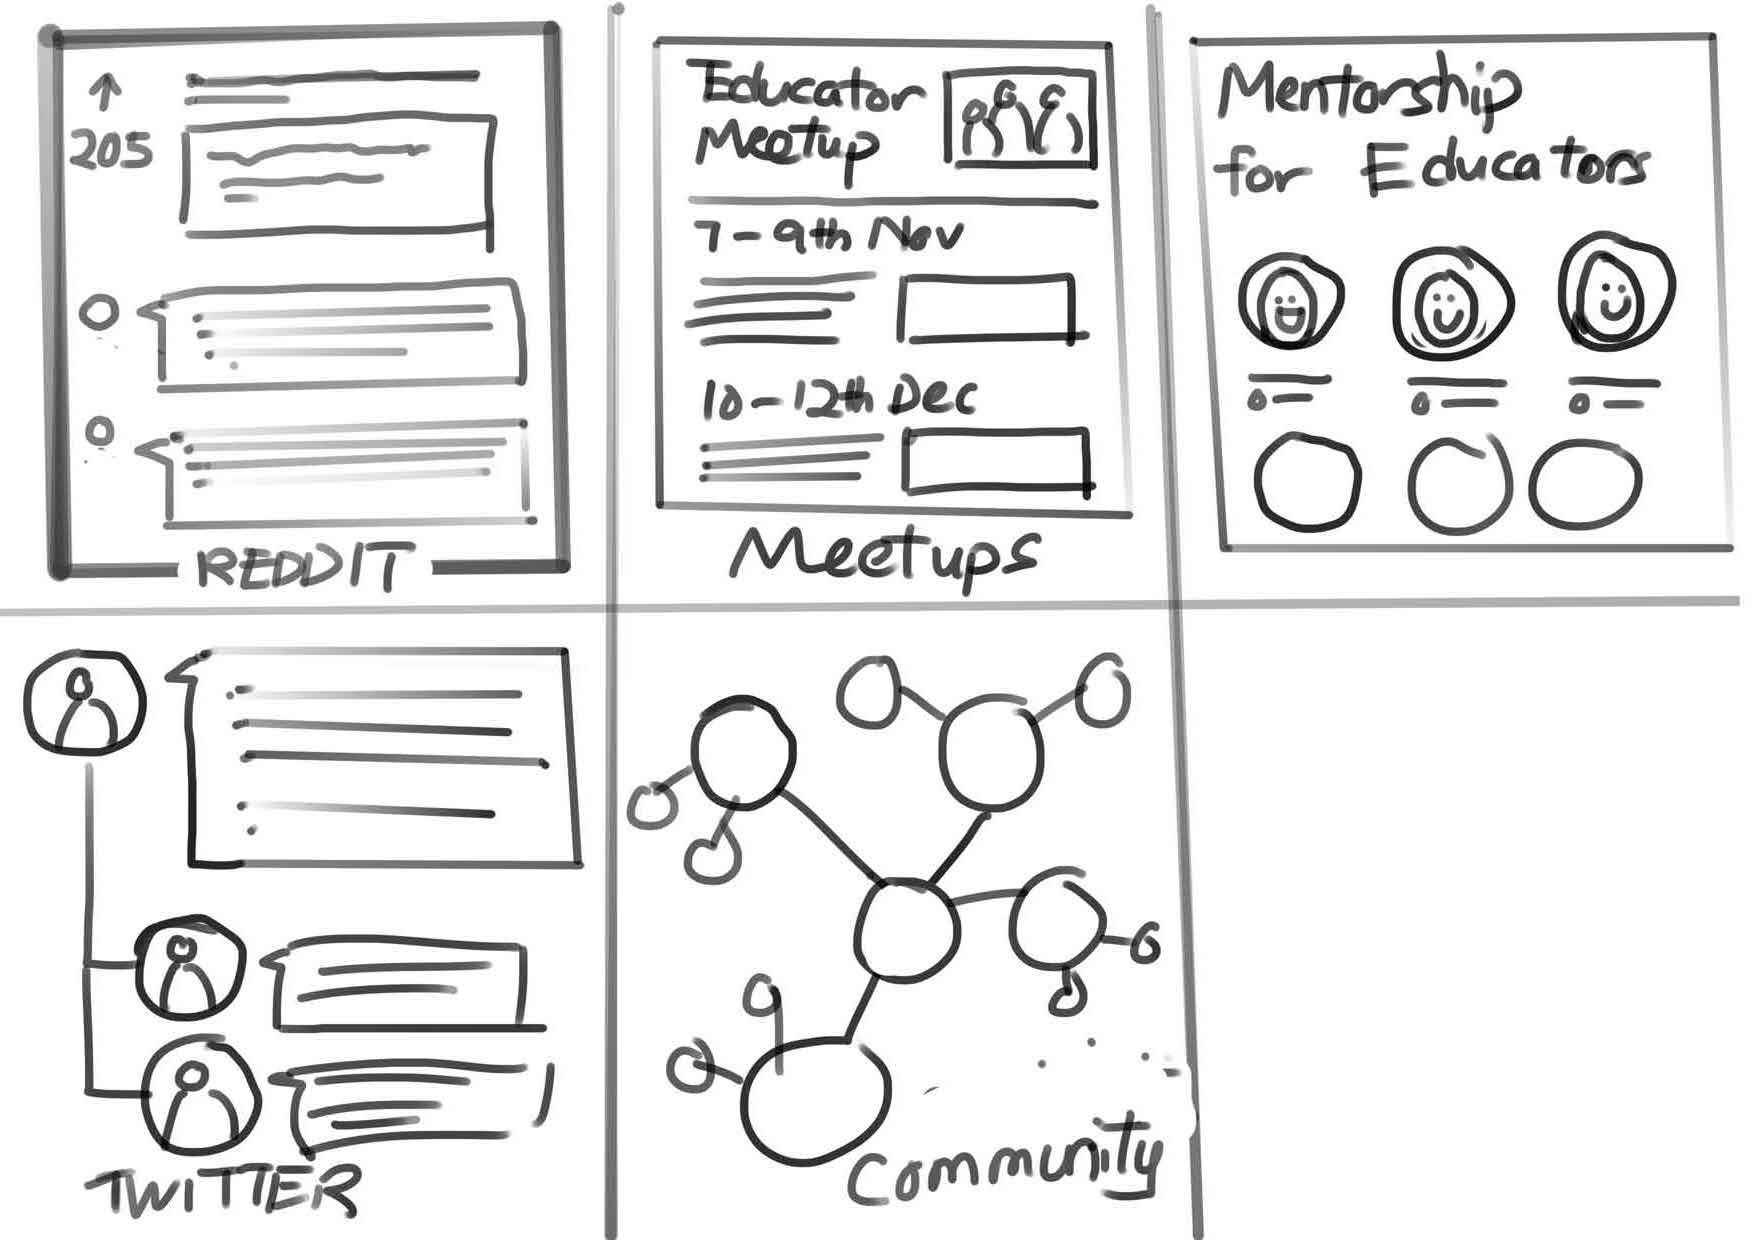 205
REDDIT
Educator
Meetup
7-9th Nov
10-12th Dec
Meetups
Mentorship
for Educators
TWITTER
Community